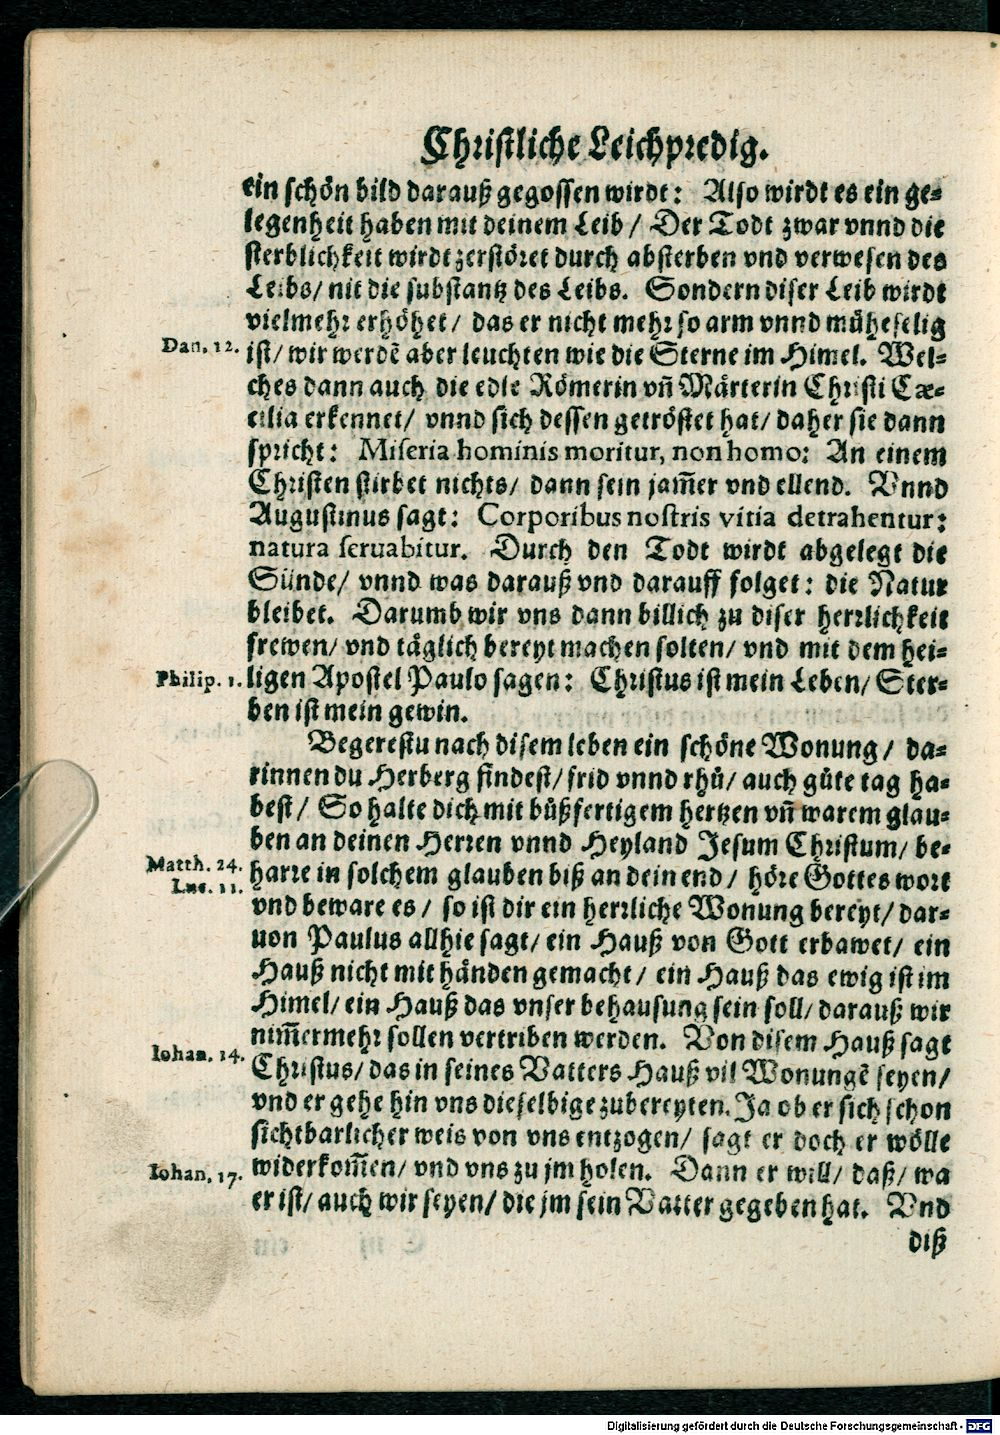 Christliche Leichpredig.
ein schön bild darauß gegossen wirdt: Also wirdt es ein ge-
legenheit haben mit deinem Leib / Der Todt zwar vnnd die
sterblichkeit wirdt zerstöret durch absterben vnd verwesen des
Leibs/ nit die substantz des Leibs. Sondern diser Leib wirdt
vielmehr erhöhet / das er nicht mehr so arm vnnd müheselig
Dan. 12.
ist/ wir werdē aber leuchten wie die Sterne im Himel. Wel-
ches dann auch die edle Römerin vñ Märterin Christi Cæ-
cilia erkennet/ vnnd sich dessen getröstet hat/ daher sie dann
spricht: Miseria hominis moritur, non homo: An einem
Christen stirbet nichts/ dann sein jam̄er vnd ellend. Vnnd
Augustinus sagt: Corporibus nostris vitia detrahentur:
natura seruabitur. Durch den Todt wirdt abgelegt die
Sünde/ vnnd was darauß vnd darauff folget: die Natur
bleibet. Darumb wir vns dann billich zu diser herrlichkeit
frewen/ vnd täglich bereyt machen solten/ vnd mit dem hei-
Philip. 1.
ligen Apostel Paulo sagen: Christus ist mein Leben/ Ster-
ben ist mein gewin.
Begerestu nach disem leben ein schöne Wonung / da-
rinnen du Herberg findest/ frid vnnd rhů/ auch gůte tag ha-
best/ So halte dich mit bůßfertigem hertzen vñ warem glau-
ben an deinen Herren vnnd Heyland Jesum Christum/ be-
Matth. 24.
harre in solchem glauben biß an dein end / höre Gottes wort
Luc. 11.
vnd beware es / so ist dir ein herrliche Wonung bereyt/ dar-
uon Paulus allhie sagt/ ein Hauß von Gott erbawet/ ein
Hauß nicht mit händen gemacht / ein Hauß das ewig ist im
Himel/ ein Hauß das vnser behausung sein soll/ darauß wir
nim̄ermehr sollen vertriben werden. Von disem Hauß sagt
Iohan. 14.
Christus/ das in seines Vatters Hauß vil Wonungē seyen/
vnd er gehe hin vns dieselbige zubereyten. Ja ob er sich schon
sichtbarlicher weis von vns entzogen/ sagt er doch er wölle
Iohan. 17.
widerkom̄en/ vnd vns zu jm holen. Dann er will/ daß/ wa
er ist/ auch wir seyen/ die jm sein Vatter gegeben hat. Vnd
diß
Digitalisierung gefördert durch die Deutsche Forschungsgemeinschaft - DFG